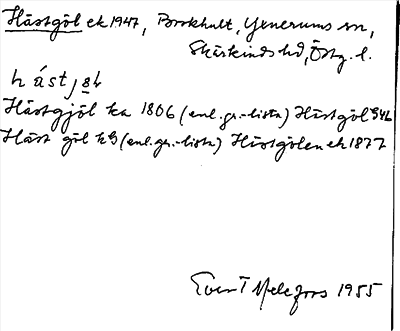 Hästgöl ek 1947, Borkhult, Yxnerums sn,
Skärkinds hd, Östg. l.
hástjəh
Hästgjöl ka 1806 (enl. gr.-lista) Hästgöl GSÄ
Häst göl kG (enl. gr.-lista) Hästgölen ek 1877
Evert Melefors 1955